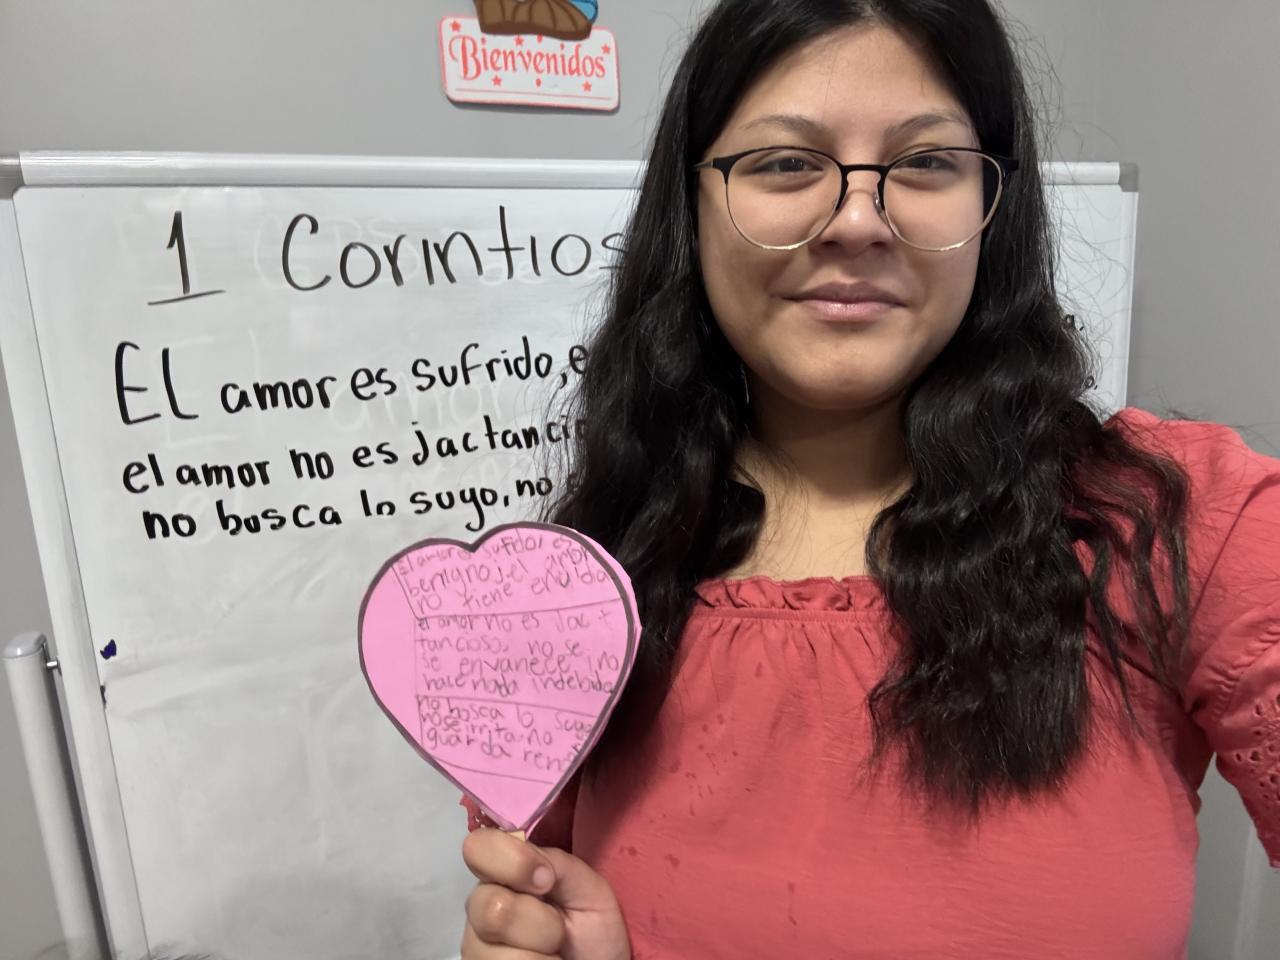 Bienvenidos
1 Corintios
El amor es sufrido, e
el amor no es jactanci
no busca lo suyo, no
El amor es sufrido, es
benigno; el amor
no tiene envidia
el amor no es Jac t
tancioso, no se
se envanece, no
hace nada indebido
no busca lo suyo
no se irrita no
guarda renc